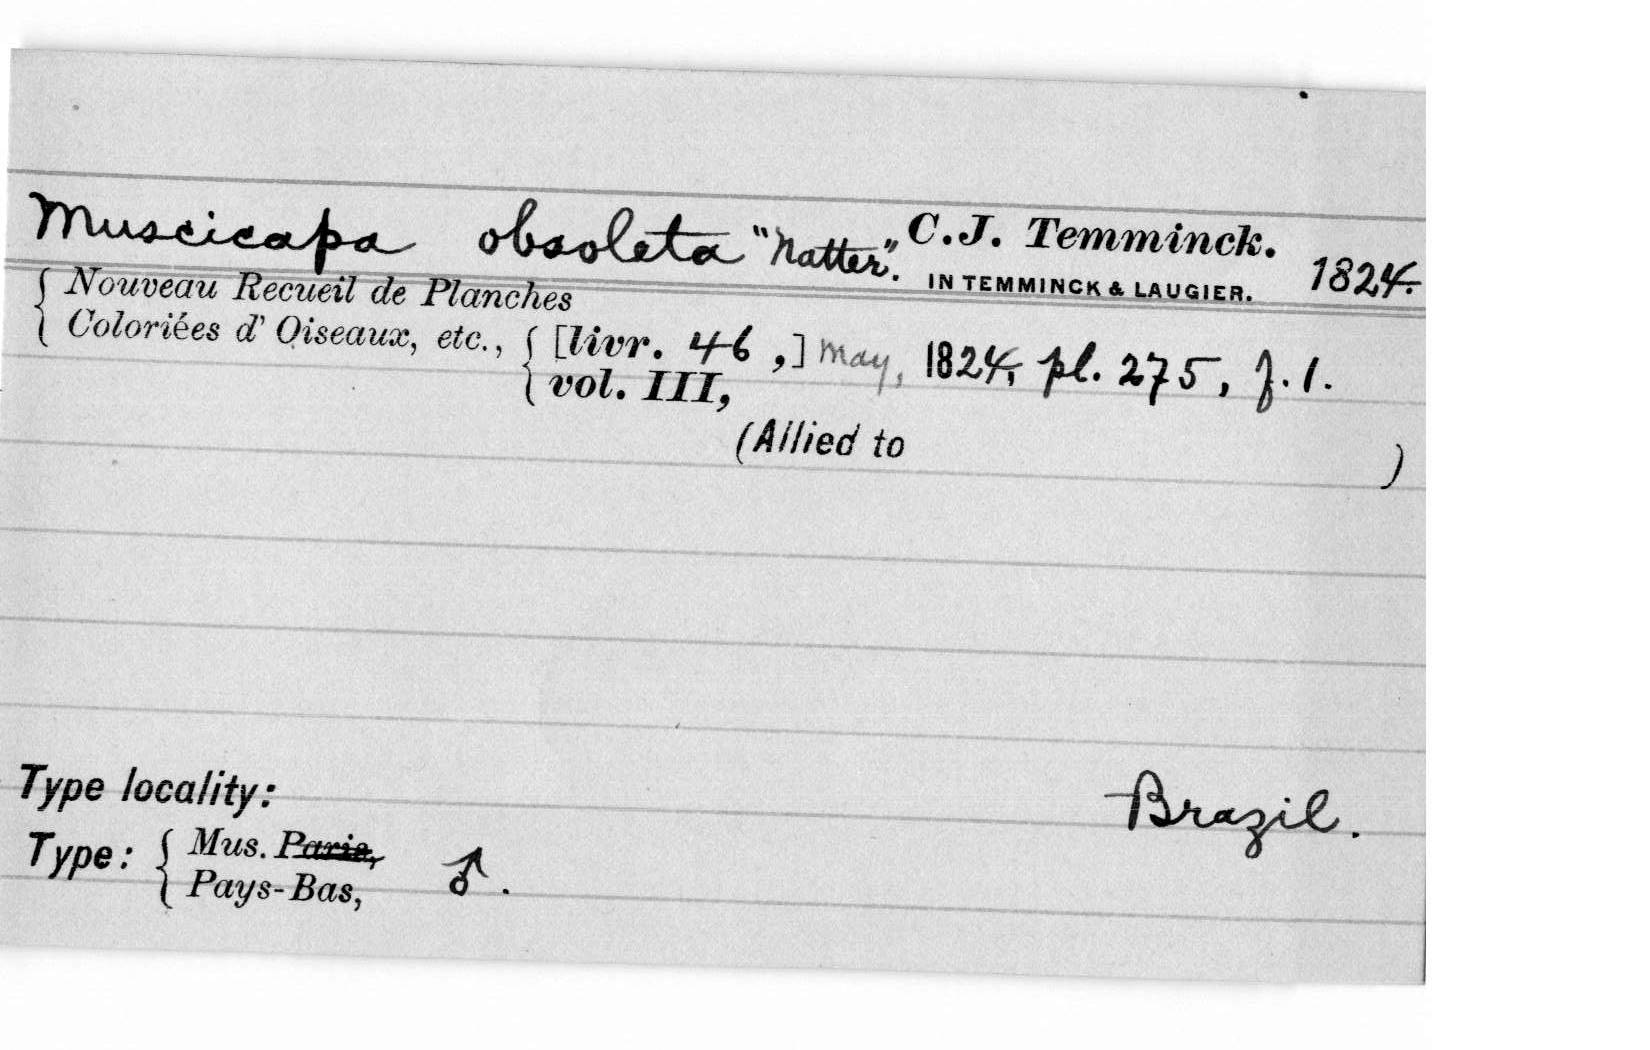 Muscicapa obsoleta "Natter". C.J. Temminck. 1824.
IN TEMMINCK & LAUGIER.
Nouveau Recueil de Planches
Coloriées d' Oiseaux, etc., [livr. 46,] May, 1824, pl. 275, f. 1.
vol. III,
(Allied to )
Type locality: Brazil.
Type: Mus. Paris,
Pays-Bas, ♂.